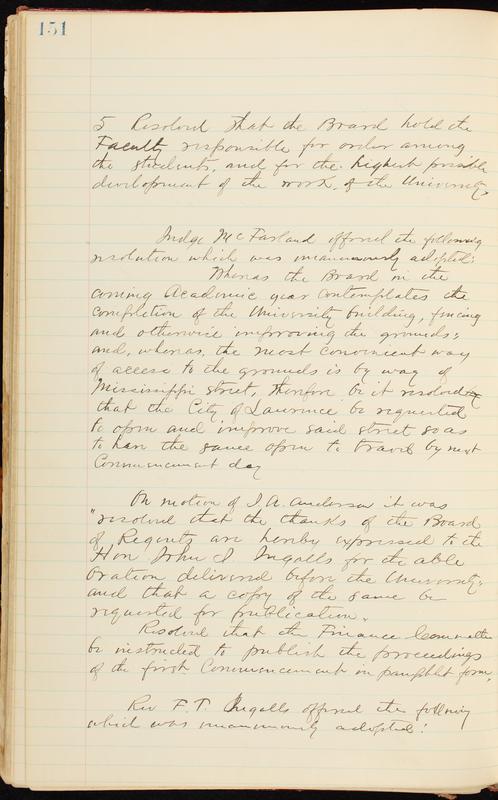 151
5 Resolved That the Board hold the
Faculty responsible for order among
the students, and for the highest possible
development of the work of the University.
Judge McFarland offered the following
resolution which was unanimously adopted:
Whereas the Board in the
coming Academic year contemplates the
completion of the University building, fencing
and otherwise improving the grounds;
and, whereas, the most convenient way
of access to the grounds is by way of
Mississippi street, therefore be it resolved
that the City of Lawrence be requested
to open and improve said street so as
to have the same open to travel by next
Commencement day
On motion of J. A. Anderson it was
"resolved that the thanks of the Board
of Regents are hereby expressed to the
Hon John J. Ingalls for the able
oration delivered before the University,
and that a copy of the same be
requested for publication.
Resolved that the Finance Committee
be instructed to publish the proceedings
of the first Commencement in pamphlet form.
Rev F. T. Ingalls offered the following
which was unanimously adopted: